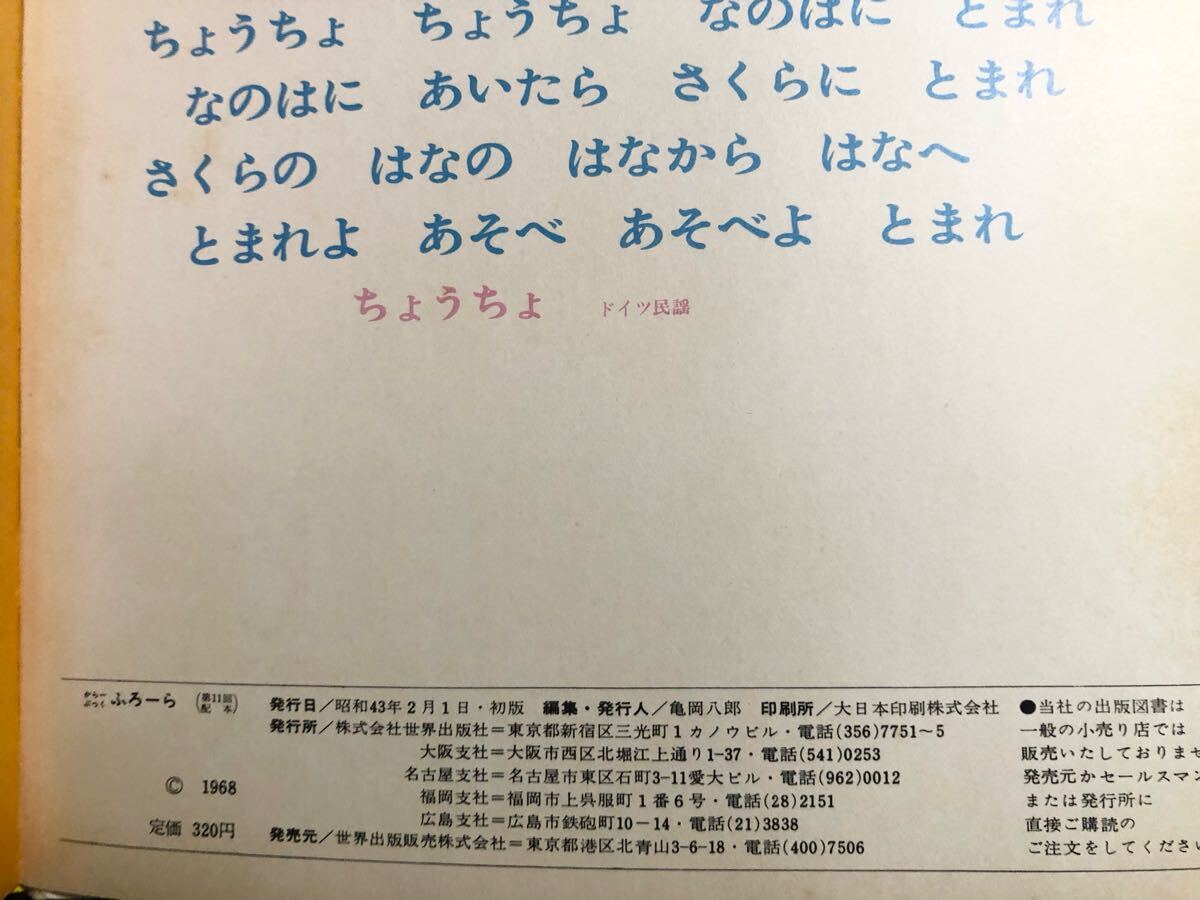 ちょうちょ　ちょうちょ　なのはに　とまれ
なのはに　あいたら　さくらに　とまれ
さくらの　はなの　はなから　はなへ
とまれよ　あそべ　あそべよ　とまれ
ちょうちょ　ドイツ民謡
からーぶっく ふろーら (第11回配本)
© 1968
定価 320円
発行日／昭和43年2月1日・初版　編集・発行人／亀岡八郎　印刷所／大日本印刷株式会社
発行所／株式会社世界出版社＝東京都新宿区三光町1カノウビル・電話(356)7751〜5
大阪支社＝大阪市西区北堀江上通り1-37・電話(541)0253
名古屋支社＝名古屋市東区石町3-11愛大ビル・電話(962)0012
福岡支社＝福岡市上呉服町1番6号・電話(28)2151
広島支社＝広島市鉄砲町10－14・電話(21)3838
発売元／世界出版販売株式会社＝東京都港区北青山3-6-18・電話(400)7506
●当社の出版図書は
一般の小売り店では
販売いたしておりませ
発売元かセールスマン
または発行所に
直接ご購読の
ご注文をしてくださ